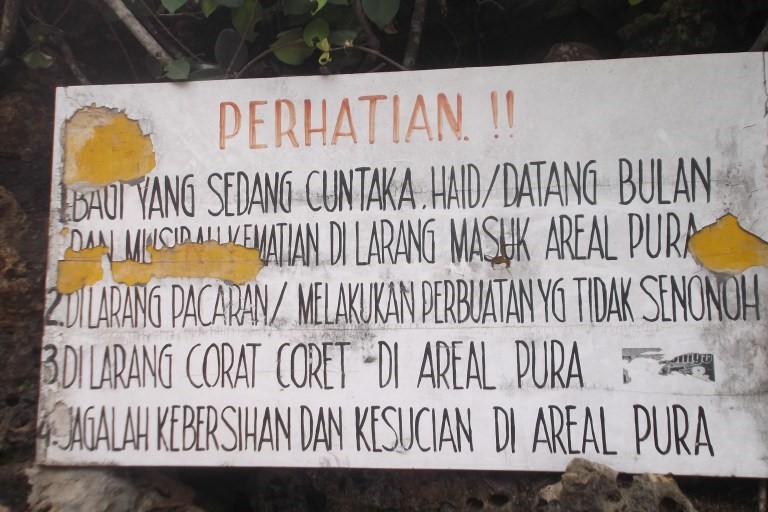 PERHATIAN. !!
1. BAGI YANG SEDANG CUNTAKA, HAID/DATANG BULAN
DAN MUSIBAH KEMATIAN DI LARANG MASUK AREAL PURA
2. DI LARANG PACARAN/ MELAKUKAN PERBUATAN YG TIDAK SENONOH
3 DI LARANG CORAT CORET DI AREAL PURA
4. JAGALAH KEBERSIHAN DAN KESUCIAN DI AREAL PURA